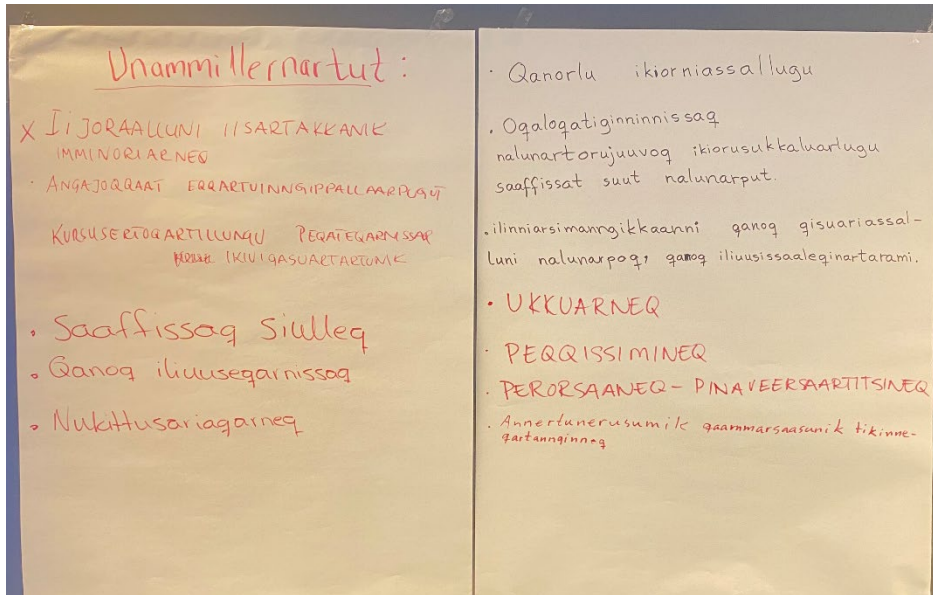 Unammillernartut:
x IiJORAALLUNI IISARTAKKANIK
IMMINORIARNEQ
· ANGAJOQQAAT EQQARTUINNGIPPALLAARPUGUT
KURSUSERTOQARTILLUNGU PEQATEQARNISSAP
IKIUIGASUARTARTUNIK
• Saaffissaq siulleq
• Qanoq iliuuseqarnissaq
• Nukittusariaqarneq
· Qanorlu ikiorniassallugu
. Oqaloqatiginninnissaq
nalunartorujuuvoq ikiorusukkaluarlugu
saaffissat suut nalunarput.
. ilinniarsimanngikkaanni qanoq qisuariassal-
luni nalunarpoq, qanoq iliuusissaaleqinartarami.
• UKKUARNEQ
· PEQQISSIMINEQ
· PERORSAANEQ - PINAVEERSAARTITSINEQ
. Annertunerusumik qaammarsaasunik tikinne-
qartannginneq